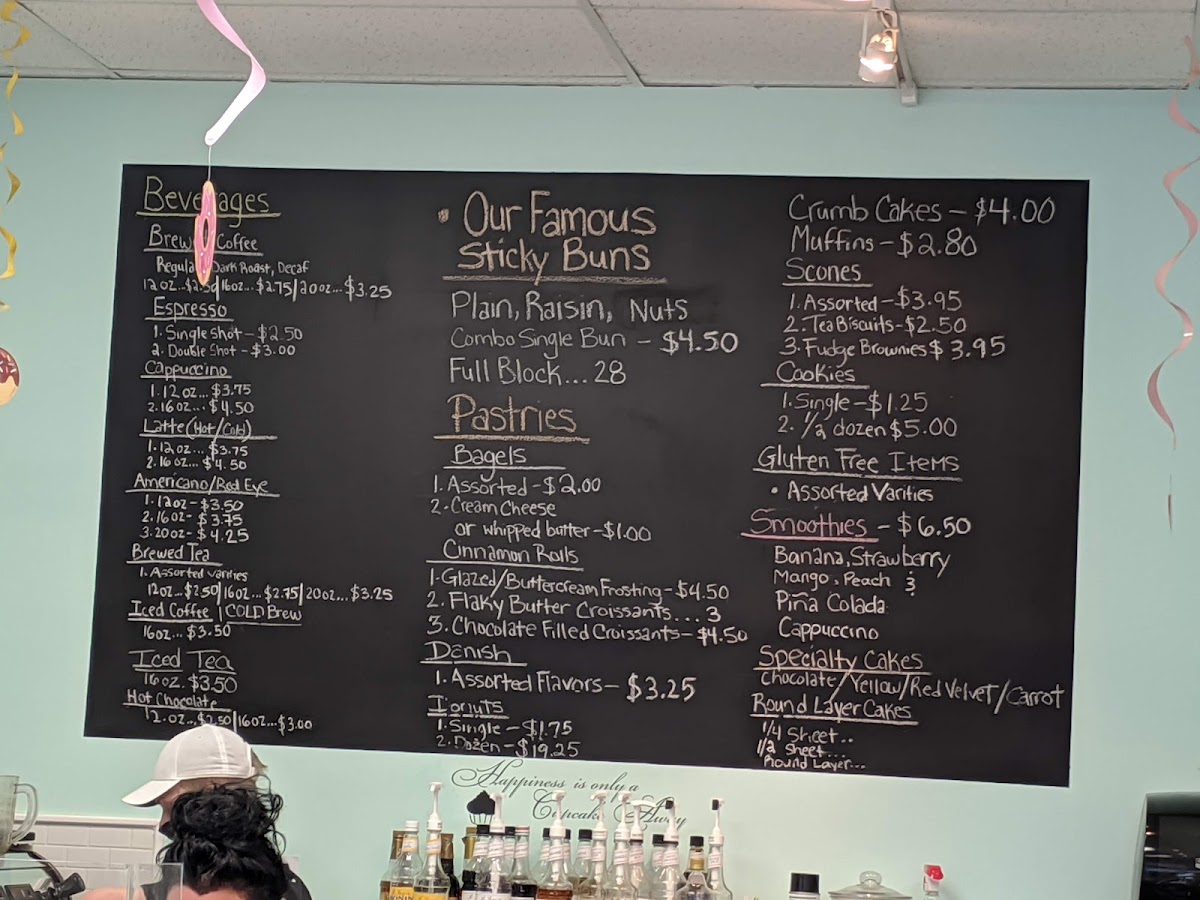 Beverages
Brewed Coffee
Regular, Dark Roast, Decaf
12oz...$2.50|16oz...$2.75|20oz...$3.25
Espresso
1. Single Shot - $2.50
2. Double Shot - $3.00
Cappuccino
1. 12oz... $3.75
2. 16oz... $4.50
Latte (Hot/Cold)
1. 12oz... $3.75
2. 16oz... $4.50
Americano/Red Eye
1. 12oz - $3.50
2. 16oz - $3.75
3. 20oz - $4.25
Brewed Tea
1. Assorted Varities
12oz...$2.50|16oz...$2.75|20oz...$3.25
Iced Coffee | COLD Brew
16oz... $3.50
Iced Tea
16oz. $3.50
Hot Chocolate
12.oz...$2.50|16oz...$3.00
• Our Famous
Sticky Buns
Plain, Raisin, Nuts
Combo Single Bun - $4.50
Full Block... 28
Pastries
Bagels
1. Assorted - $2.00
2. Cream Cheese
or whipped butter - $1.00
Cinnamon Rolls
1. Glazed/Buttercream Frosting - $4.50
2. Flaky Butter Croissants... 3
3. Chocolate Filled Croissants - $4.50
Danish
1. Assorted Flavors - $3.25
Donuts
1. Single - $1.75
2. Dozen - $19.25
Crumb Cakes - $4.00
Muffins - $2.80
Scones
1. Assorted - $3.95
2. Tea Biscuits - $2.50
3. Fudge Brownies $3.95
Cookies
1. Single - $1.25
2. 1/2 dozen $5.00
Gluten Free Items
• Assorted Varities
Smoothies - $6.50
Banana, Strawberry
Mango, Peach &
Piña Colada
Cappuccino
Specialty Cakes
Chocolate/Yellow/Red Velvet/Carrot
Round Layer Cakes
1/4 Sheet..
1/2 Sheet...
Round Layer...
Happiness is only a
Cupcake Away